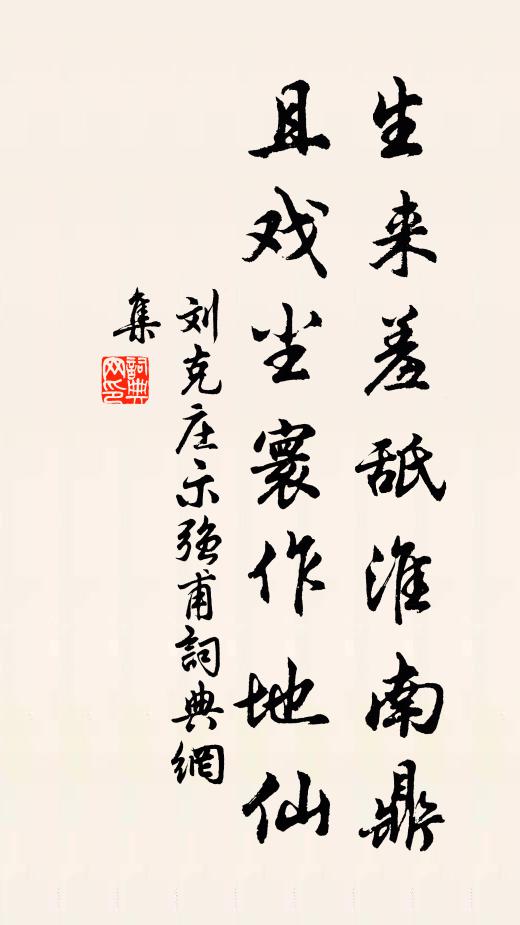 生来羞舐淮南鼎
且戏尘寰作地仙
刘克庄示强甫詞典網
集
詞典网印